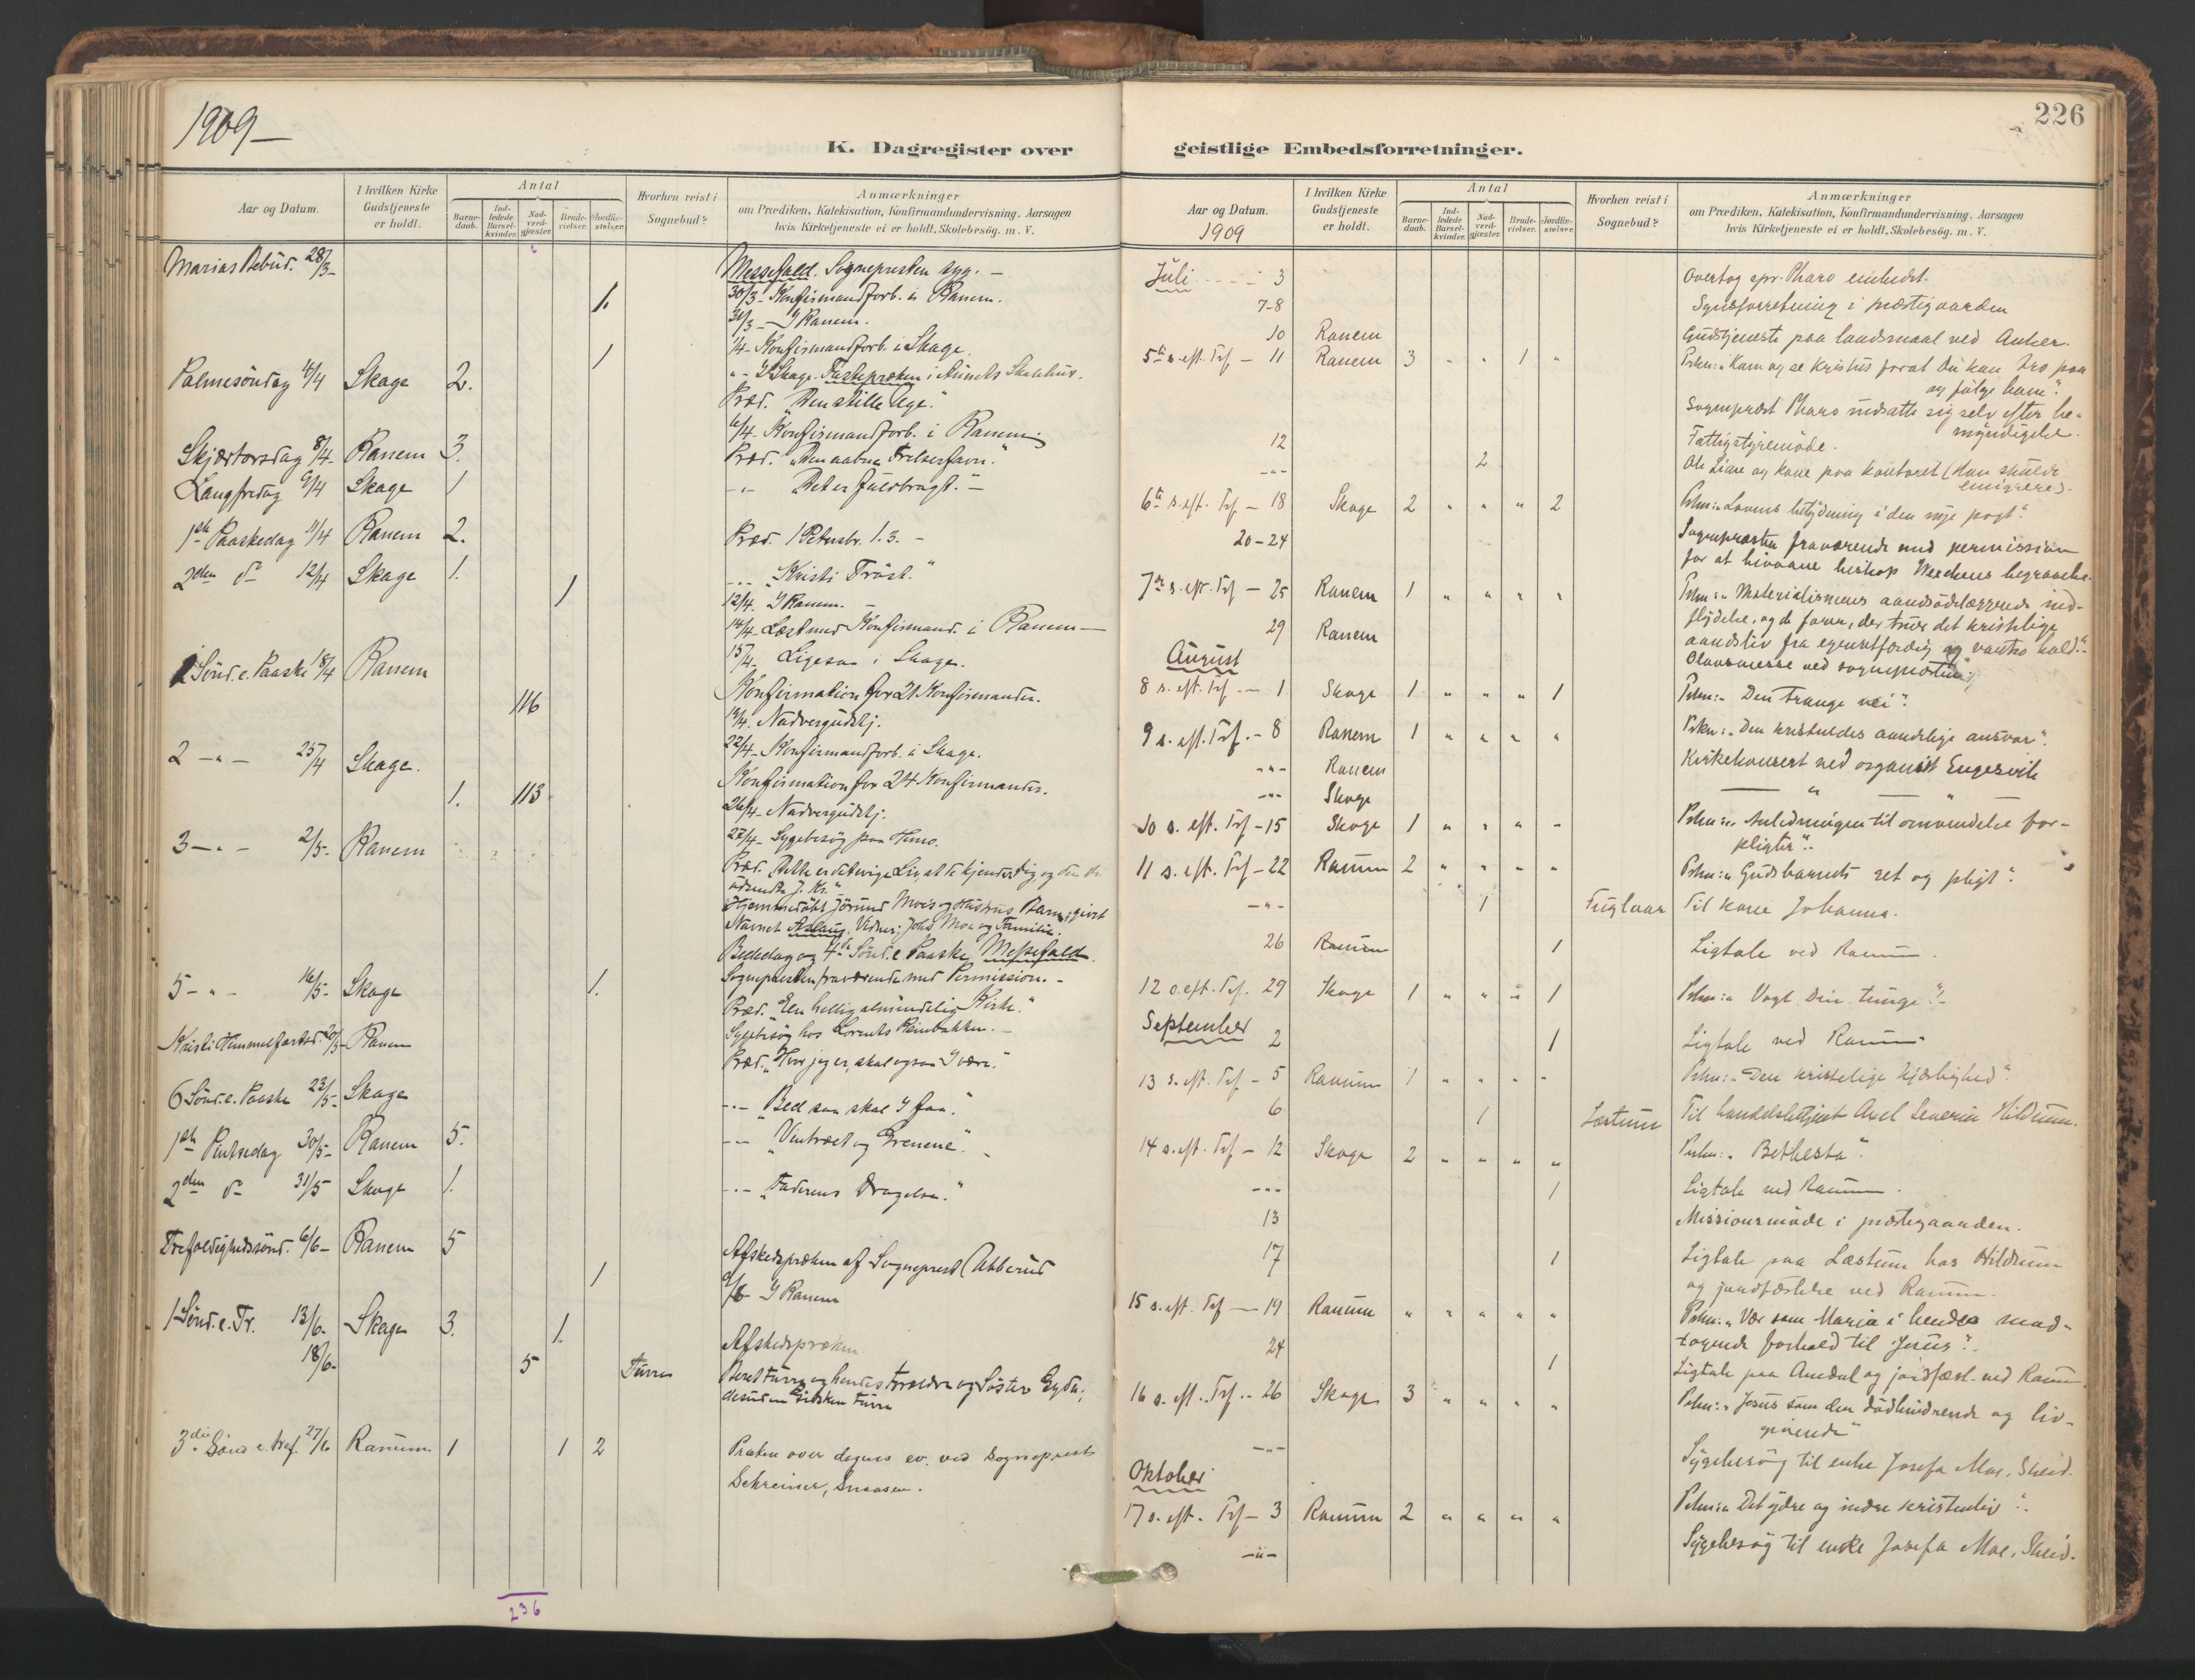 1909 —
K. Dagregister over
Aar og Datum.
I hvilken Kirke Gudstjeneste er holdt.
Antal
Barne-daab.
Ind-ledede Barsel-kvinder.
Nad-verd-gjæster.
Brude-vielser.
Jordfæ-stelser.
Hvorhen reist i Sognebud?
Anmærkninger
om Prædiken, Katekisation, Konfirmandundervisning. Aarsagen
hvis Kirketjeneste ei er holdt. Skolebesøg. m. V.
Marias Bebud. 28/3- Messefald. Sognepresten syg. —
1. 30/3- Konfirmandforb. i Ranem.
31/3 - I Ranem.
1/4- Konfirmandforb. i Skage.
1 " - I Skage. Fastepræken i Skolehus.
Palmesöndag 4/4 Skage 2. Præd. "Den stille Uge."
6/4. Konfirmandforb. i Ranem
Skjærtorsdag 8/4- Ranem 3. Præd. "Den aabne Frelserfavn."
Langfredag 9/4 Skage 1 -"- Det er fuldbragt." —
1ste Paaskedag 11/4 Ranem 2. Præd. 1 Petersbr. 1.3. —
2den do 12/4 Skage 1. -"- "Kristi Tröst."
1 12/4. I Ranem. —
14/4. Læst med Konfirmand. i Ranem —
15/4. Ligesaa i Skage.
1 Sönd. e. Paaske 18/4 Ranem Konfirmation for 21 Konfirmander.
116 19/4. Nadvergudstj.
22/4- Konfirmandforb. i Skage.
2 -"- 25/4 Skage. Konfirmation for 24 Konfirmander.
1. 113 26/4- Nadvergudstj.
27/4- Sygebesög paa Himo.
3 -"- 2/5- Ranem Præd. "Dette er det evige Liv, at de kjender dig og den du
udsendte J. Kr."
Hjemmedöbt Jörund Moes og Hustrus Barn, givet
Navnet Aslaug. Vidner: John Moe og Familie.
Bededag og 4de Sönd. e. Paaske Messefald.
Sognepresten fraværende med Permission. —
5 -"- 16/5- Skage 1. Præd. "En hellig almindelig Kirke."
Sygebesög hos Lorents Reinbakken. —
Kristi Himmelfartsd. 20/5- Ranem Præd. "Hvor jeg er, skal ogsaa I være."
6 Sönd. e. Paaske 23/5- Skage -"- "Bed saa skal I faa."
1ste Pintsedag 30/5- Ranem 5. -"- "Vintræet og Grenene."
2den do 31/5 Skage 1. -"- "Faderens Dragelse."
Trefoldighedssönd. 6/6- Ranem 5 Afskedspræken af Sogneprest Abberud
1 9/6- I Ranem
1 Sönd. e. Tr. 13/6- Skage 3. 1. Afskedspræken
18/6- 5 Furre Beret Furre og hendes Forældre og Söster Gyda,
desuden Gidsken Furre
3die Sönd. e. tref. 27/6 Ranem 1 1 2 Præken over dagens ev. ved Sogneprest
Schreiner, Snaasen.
236
226
geistlige Embedsforretninger.
Aar og Datum.
1909
I hvilken Kirke Gudstjeneste er holdt.
Antal
Barne-daab.
Ind-ledede Barsel-kvinder.
Nad-verd-gjæster.
Brude-vielser.
Jordfæ-stelser.
Hvorhen reist i Sognebud?
Anmærkninger
om Prædiken, Katekisation, Konfirmandundervisning. Aarsagen
hvis Kirketjeneste ei er holdt. Skolebesøg. m. V.
Juli 3 Overtog spr. Pharo embedet.
7-8 Synsforretning i præstegaarden
10 Ranem Gudstjeneste paa landsmaal ved Anker.
5te s. eft. Trf. — 11 Ranem 3 " " 1 " Prkn: "Kom og se Kristus forat du kan tro paa
og følge ham".
Sogneprest Pharo indsatte sig selv efter be-
myndigelse.
12 Fattigstyremöde.
-"- 2 Ole Lian og kone paa kontoret (Han skulde
emigrere).
6te s. eft. Trf — 18 Skage 2 " " " 2 Prkn: "Lovens betydning i den nye pagt".
20-24 Sognepresten fraværende med permission
for at bivaane biskop Wexelsens begravelse.
7de s. eft. Trf — 25 Ranem 1 " " " " Prkn: "Materialismens aandsödelæggende ind-
flydelse, og de farer, der truer det kristelige
aandsliv fra egenretfærdig og vantro hold".
29 Ranem Olavsmesse ved sognepresten
August
8 s. eft. Trf. — 1 Skage 1 " " " 1 Prkn: "Den trange vei".
9 s. eft. Trf. - 8 Ranem 1 " " " " Prkn: "Den kristnes aandelige ansvar".
-"- Ranem Kirkekonsert ved organist Engesvik
-"- Skage — " — " —
10 s. eft. Trf - 15 Skage 1 " " " " Prkn: "Anledningen til omvendelse for-
pligter".
11 s. eft. Trf - 22 Ranem 2 " " " " Prkn: "Gudsbarnets ret og pligt".
-"- 1 Fuglaar Til kone Johanna.
26 Ranem 1 Ligtale ved Ranem.
12 s. eft. Trf. 29 Skage 1 " " " 1 Prkn: "Vogt Din tunge".
September
2 1 Ligtale ved Ranem.
13 s. eft. Trf - 5 Ranem 1 " " " " Prkn: "Den kristelige kjærlighed".
6 1 Læstum Til handelsbetjent Axel Severin Hildrum.
14 s. eft. Trf — 12 Skage 2 " " " " Prkn: "Bethesda".
-"- 1 Ligtale ved Ranem.
13 Missionsmöde i prestegaarden.
17 1 Ligtale paa Læstum hos Hildrum
og jordfæstelse ved Ranem.
15 s. eft. Trf — 19 Ranem " " " " " Prkn: "Vær som Maria i hendes mod-
tagende forhold til Jesus".
24 1 Ligtale paa Amdal og jordfæst. ved Ranem
16 s. eft. Trf - 26 Skage 3 " " " " Prkn: "Jesus som den dödhindrende og liv-
givende"
-"- Sygebesög til enke Josefa Moe, Skeid.
Oktober
17 s. eft. Trf — 3 Ranem 2 " " " " Prkn: "Det ydre og indre kristenliv".
-"- Sygebesög til enke Josefa Moe, Skeid.